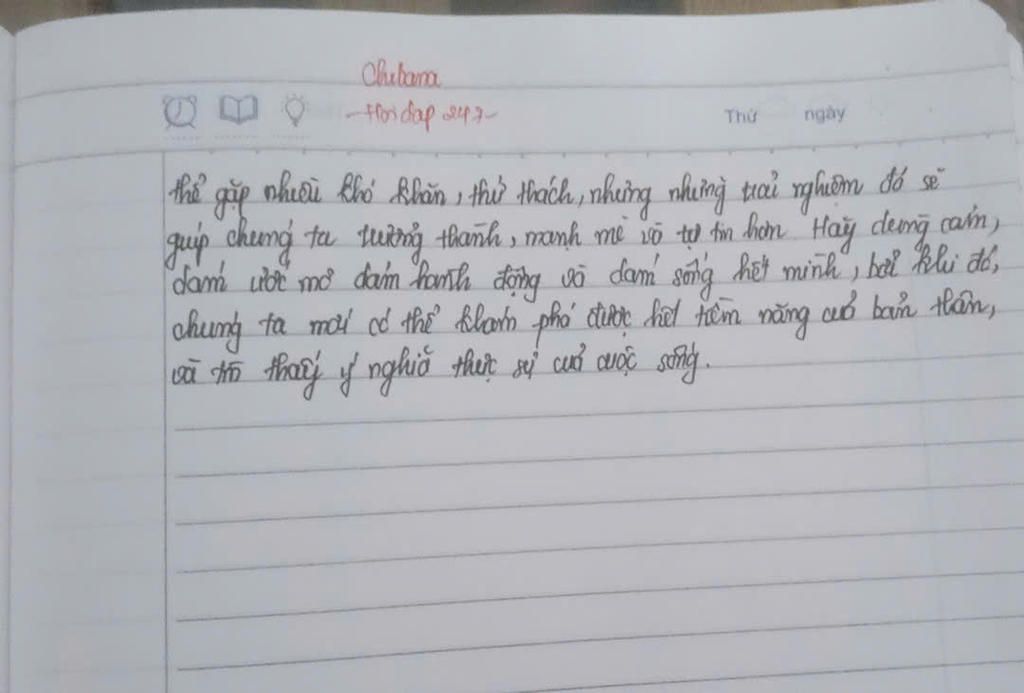 Chubana
-Hoi đap 247-
Thứ ngày
thể gặp nhiều khó khăn, thử thách, nhưng những trải nghiệm đó sẽ
giúp chúng ta trưởng thành, mạnh mẽ và tự tin hơn Hãy dũng cảm,
dám ước mơ dám hành động và dám sống hết mình, bởi khi đó,
chúng ta mới có thể khám phá được hết tiềm năng của bản thân,
và tìm thấy ý nghĩa thực sự của cuộc sống.